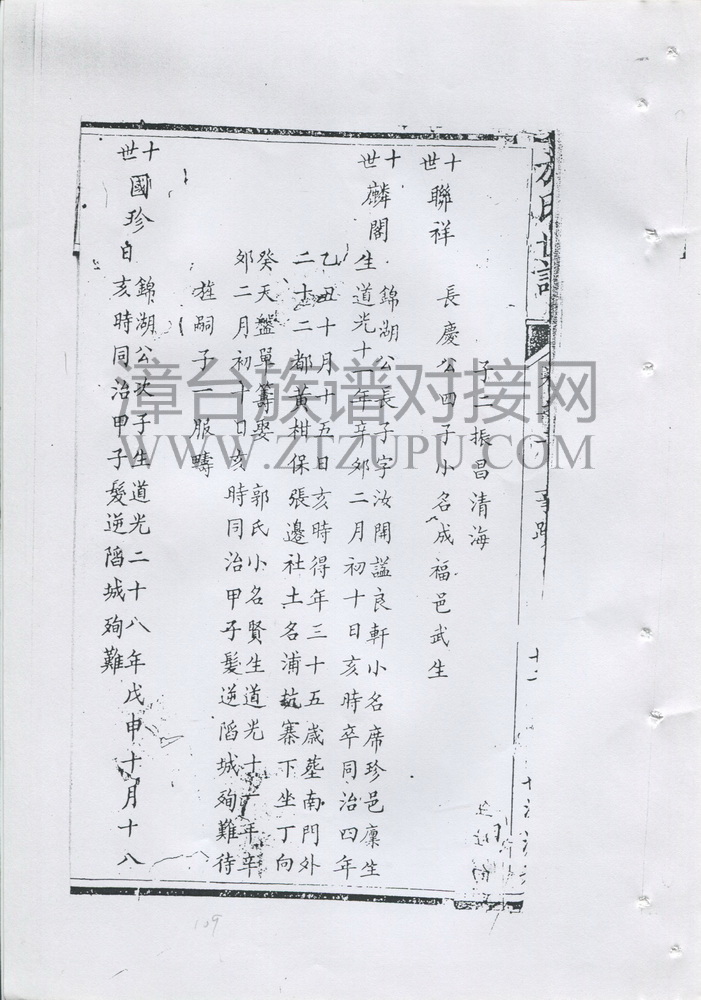 子二振昌清海
十世聯祥 長慶公四子小名成福邑武生
十世麟閣 錦湖公長子字汝開諡良軒小名席珍邑廩生
生道光十一年辛卯二月初十日亥時卒同治四年
乙丑十月十五日亥時得年三十五歲墓南門外
二十二都黃柑保張邊社土名浦坑寨下坐丁向
癸天盤單籌娶郭氏小名賢生道光十一年辛
卯二月初十日亥時同治甲子髮逆陷城殉難待
旌嗣子一服疇
十世國珍 錦湖公次子生道光二十八年戊申十月十八
日亥時同治甲子髮逆陷城殉難
漳台族谱对接网
WWW.ZTZUPU.COM
109